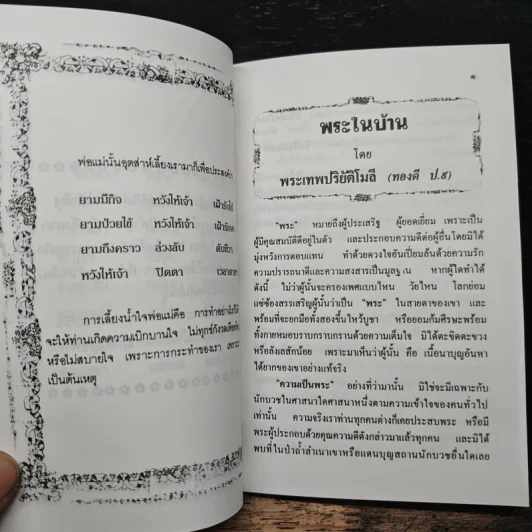 พ่อแม่นั้นอุตส่าห์เลี้ยงเรามาก็เพื่อประสงค์ว่า
ยามมีกิจ หวังให้เจ้า เฝ้ารับใช้
ยามป่วยไข้ หวังให้เจ้า เฝ้ารักษา
ยามถึงคราว ล่วงลับ ดับชีวา
หวังให้เจ้า ปิดตา เวลาตาย
การเลี้ยงน้ำใจพ่อแม่คือ การทำอย่างไรก็ได้
จะให้ท่านเกิดความเบิกบานใจ ไม่ทุกข์กังวลเดือดร้อน
หรือไม่สบายใจ เพราะการกระทำของเรา เพราะ
เป็นต้นเหตุ
๑
พระในบ้าน
โดย
พระเทพปริยัติโมลี (ทองดี ป.๙)
"พระ" หมายถึงผู้ประเสริฐ ผู้ยอดเยี่ยม เพราะเป็น
ผู้มีคุณสมบัติดีอยู่ในตัว และประกอบความดีต่อผู้อื่นโดยมิได้
มุ่งหวังการตอบแทน ทำด้วยดวงใจอันเปี่ยมล้นด้วยความรัก
ความปรารถนาดีและความสงสารเป็นมูลฐาน หากผู้ใดทำได้
ดังนี้ ไม่ว่าผู้นั้นจะครองเพศแบบไหน วัยไหน โลกย่อม
แซ่ซ้องสรรเสริญผู้นั้นว่าเป็น "พระ" ในสายตาของเขา และ
พร้อมที่จะยกมือทั้งสองขึ้นไหว้บูชา หรือยอมก้มศีรษะพร้อม
ทั้งกายหมอบราบกราบกรานด้วยความเต็มใจ มิได้ตะขิดตะขวง
หรือลังเลสักน้อย เพราะมาเห็นว่าผู้นั้น คือ เนื้อนาบุญอันหา
ได้ยากของเขาอย่างแท้จริง
"ความเป็นพระ" อย่างที่ว่ามานั้น มิใช่จะมีเฉพาะกับ
นักบวชในศาสนาใดศาสนาหนึ่งตามความเข้าใจของคนทั่วไป
เท่านั้น ความจริงเราท่านทุกคนต่างก็เคยประสบพระ หรือมี
พระผู้ประกอบด้วยคุณความดีดังกล่าวมาแล้วทุกคน และมิได้
พบที่ในป่าถ้ำลำเนาเขาหรือแดนบุญสถานนักบวชอื่นใดเลย